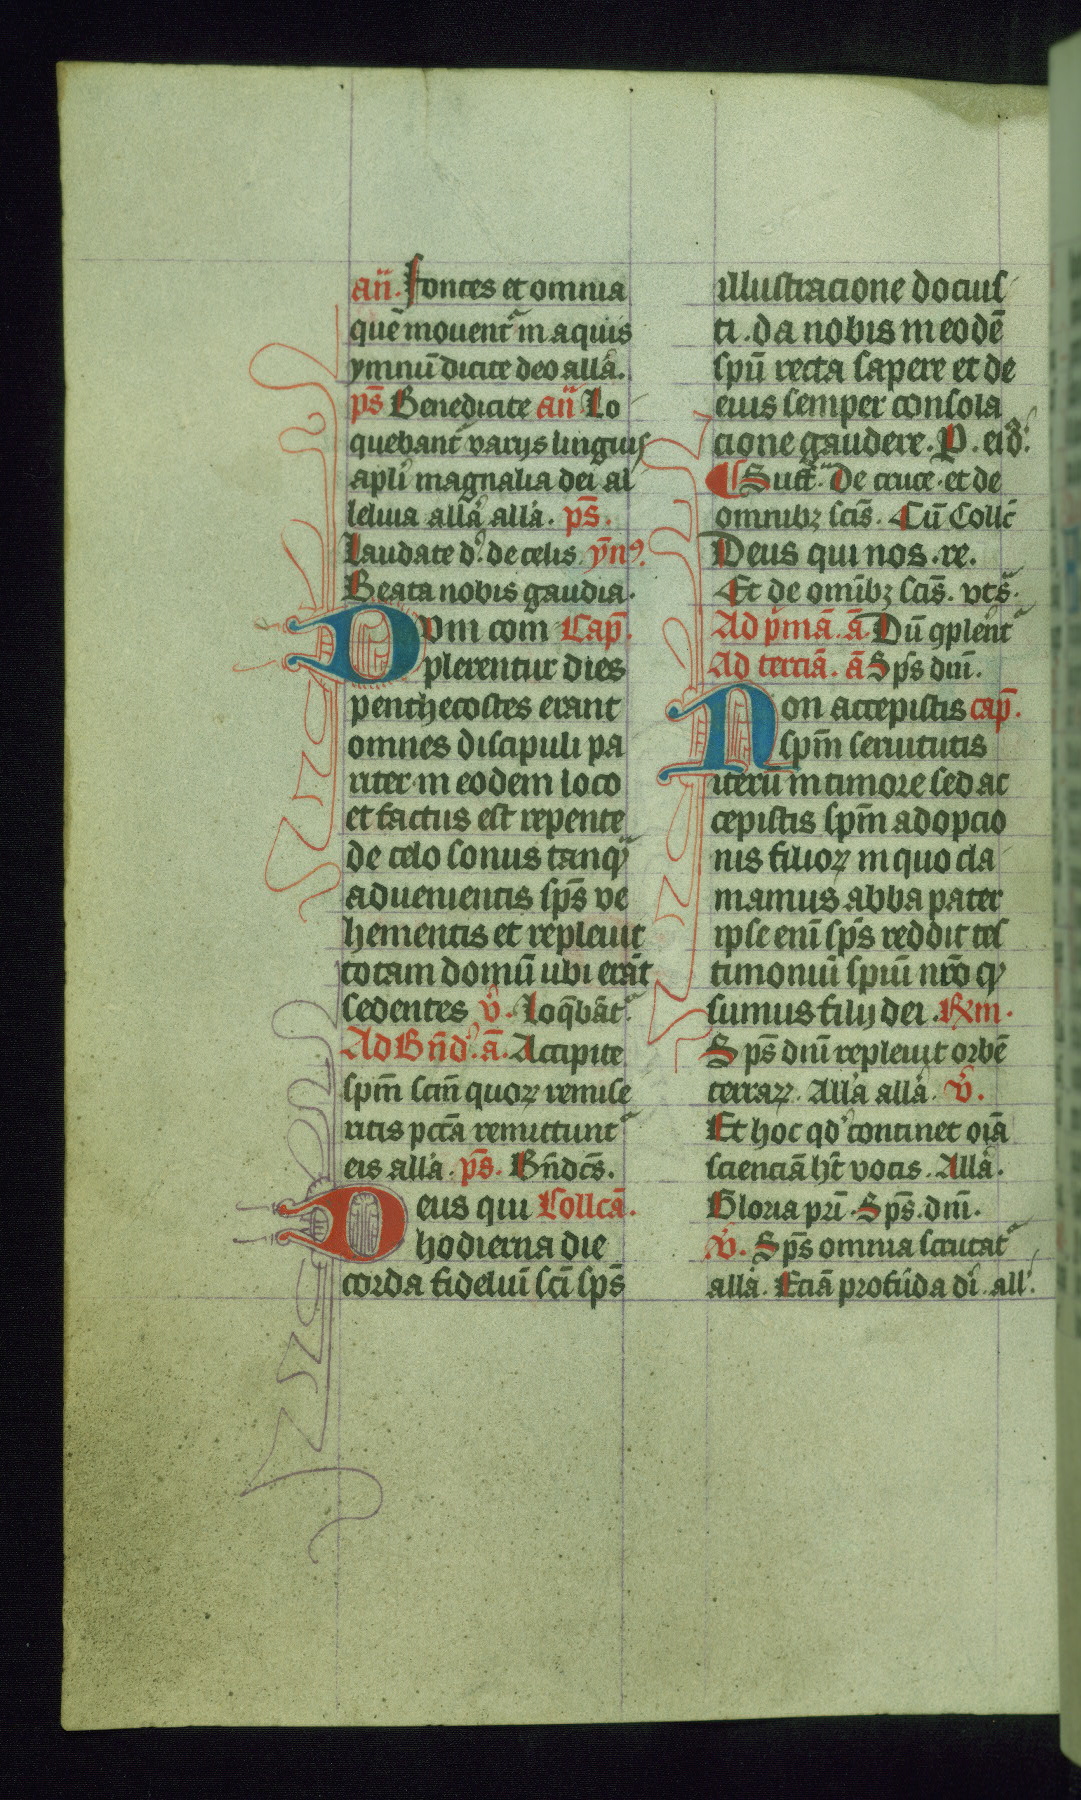 an̄. Fontes et omnia
quē mouent᷑ in aquis
ymnū dicite deo allā.
ps̄ Benedicite an̄ Lo
quebant᷑ varijs linguis
apl̓i magnalia dei al
leluia allā allā. ps̄.
Laudate d̓. de celis ym̄ꝯ.
Beata nobis gaudia.
Dvm com Cap̄.
plerentur dies
penthecostes erant
omnes discipuli pa
riter in eodem loco
et factus est repente
de celo sonus tanqͣ
aduenientis sps̄ ve
hementis et repleuit
totam domū ubi erāt
sedentes v̓. Loq̄bāt᷑.
Ad Bn̄d̓. ā. Accipite
spm̄ scm̄ quoꝝ remise
ritis pctā remittunt᷑
eis allā. ps̄. Bn̄dc̄s.
Deus qui Collcā.
hodierna die
corda fideluī sci̅ sps̄
illustracione docuis
ti. da nobis in eodē
spū recta sapere et de
eius semper consola
cione gaudere. P. eid̓.
¶ Suff᷑. De cruce. et de
omnibꝫ scis̄. Cū Collc̄
Deus qui nos. re.
Et de omībꝫ scis̄. vts᷑.
Ad pͥmā. ā. Dū ꝯplent᷑
Ad terciā. ā Sps dnī.
Non accepistis cap̄.
spm̄ seruitutis
iterū in timore sed ac
cepistis spm̄ adopcio
nis filioꝝ in quo cla
mamus abba pater
ipse enī sps̄ reddit tes
timoniū spiuī nrō qͥ
sumus filij dei. Rm.
Sps̄ dnī repleuit orbē
terraꝝ. Allā allā. v̓.
Et hoc qd̓ continet oīā
scienciā ht̄ vocis. Allā.
Gloria pri̅. Sps̄. dnī.
v̓. Sps̄ omnia scrutat᷑
allā. Eciā profūda dī. all̓.